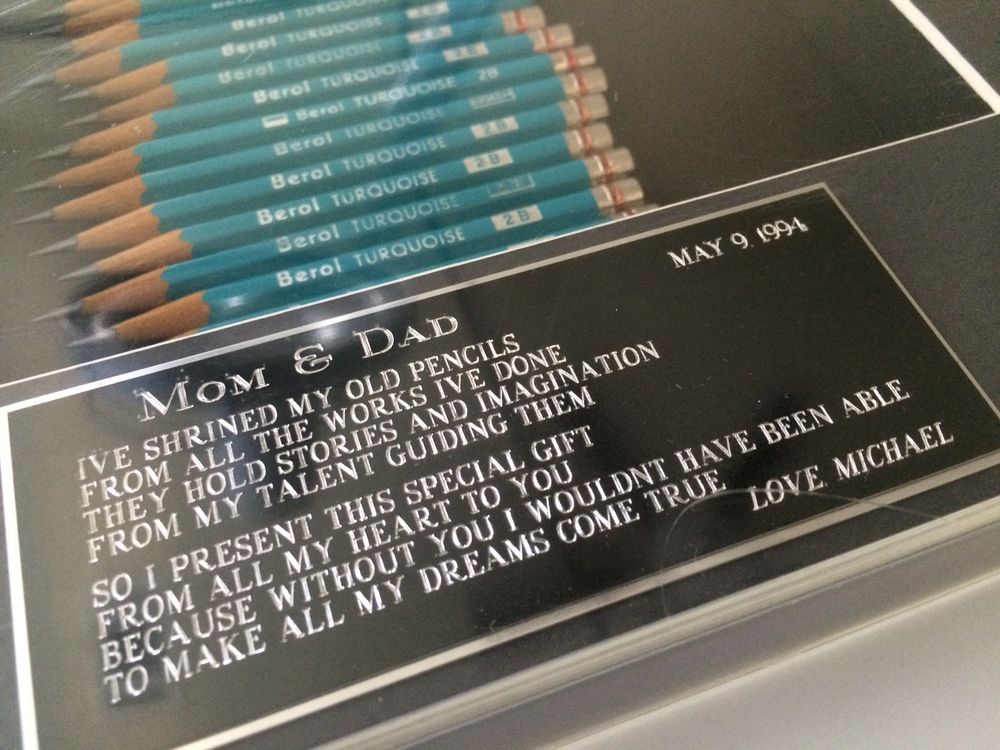 Berol TURQUOISE
Berol TURQUOISE
Berol TURQUOISE
Berol TURQUOISE 2B
Berol TURQUOISE
Berol TURQUOISE 2B
Berol TURQUOISE 2B
Berol TURQUOISE
Berol TURQUOISE 2B
Berol TURQUOISE
MAY 9, 1994
MOM & DAD
IVE SHRINED MY OLD PENCILS
FROM ALL THE WORKS IVE DONE
THEY HOLD STORIES AND IMAGINATION
FROM MY TALENT GUIDING THEM
SO I PRESENT THIS SPECIAL GIFT
FROM ALL MY HEART TO YOU
BECAUSE WITHOUT YOU I WOULDNT HAVE BEEN ABLE
TO MAKE ALL MY DREAMS COME TRUE
LOVE MICHAEL